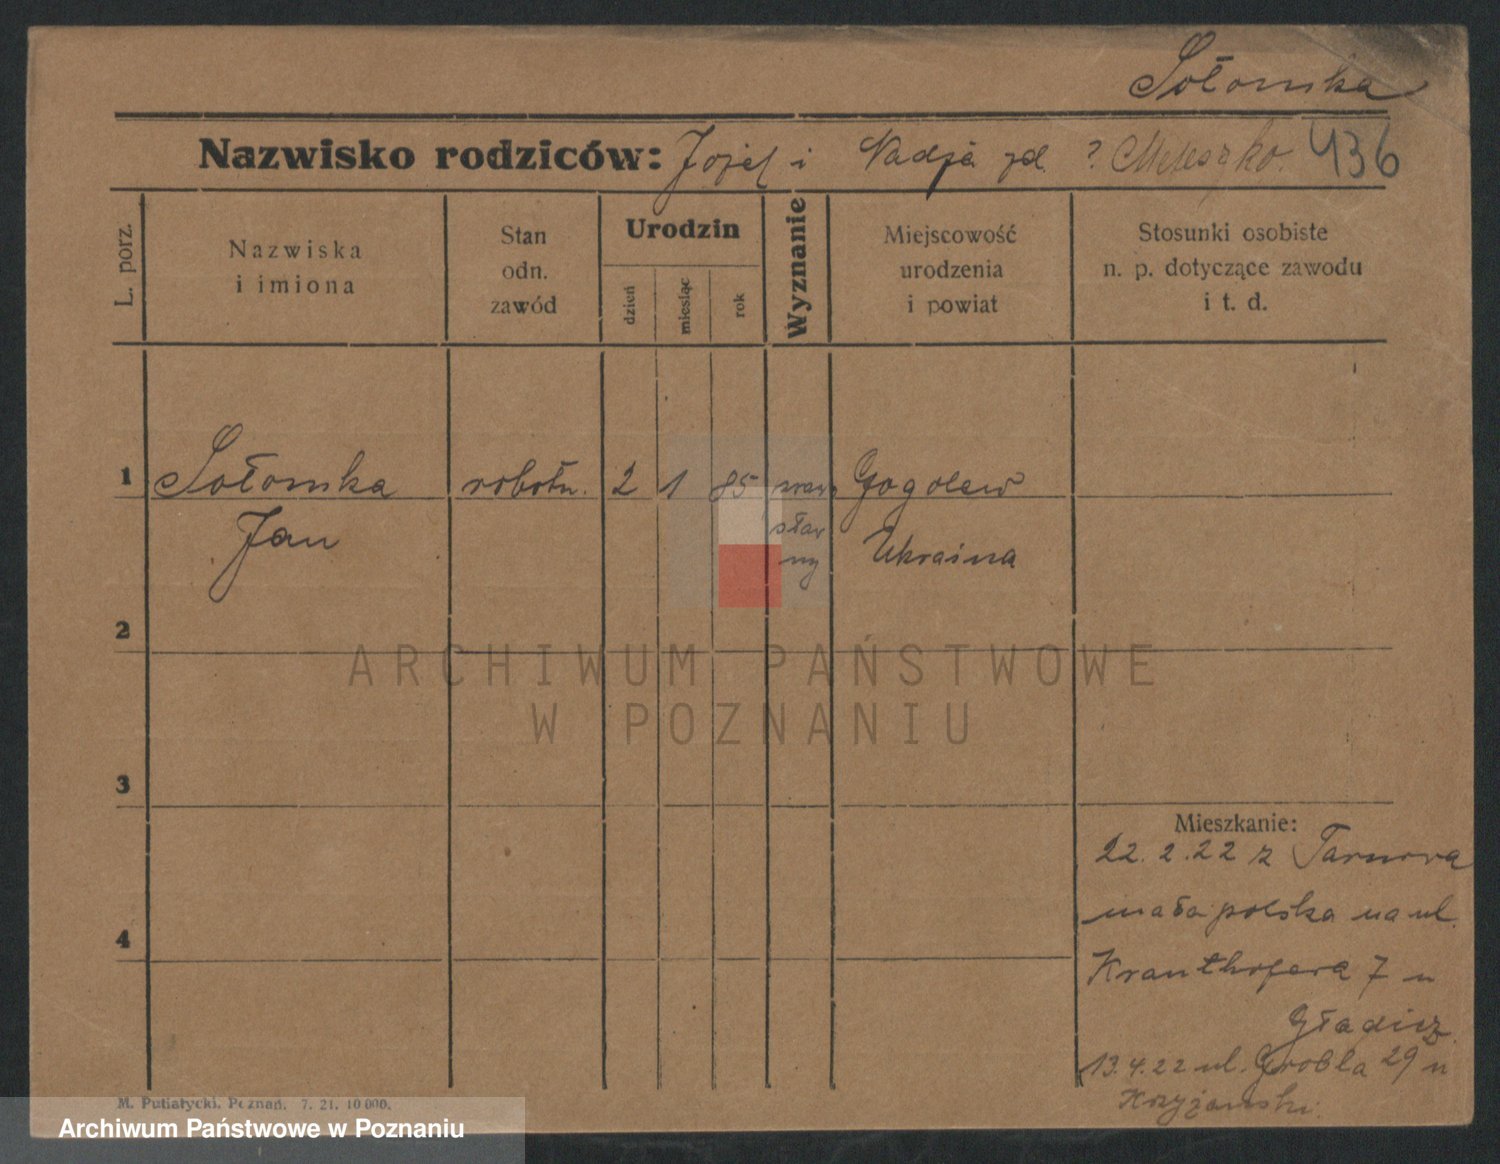 Sołomka
Nazwisko rodziców: Józef i Nadja zd. ? Meleszko. 436
L. porz.
Nazwiska
i imiona
Stan
odn.
zawód
Urodzin
dzień
miesiąc
rok
Wyznanie
Miejscowość
urodzenia
i powiat
Stosunki osobiste
n. p. dotyczące zawodu
i t. d.
1 Sołomka robotn. 2 1 85 praw Gogolew
Jan sław Ukraina
ny
2
3
4
Mieszkanie:
22.2.22 z Tarnowa
małapolska na ul.
Kranthofera 7 u
Gładisz
13.4.22 ul. Grobla 29 u
Krzyżański.
M. Putiatycki. Poznań. 7. 21. 10 000.
ARCHIWUM PAŃSTWOWE
W POZNANIU
Archiwum Państwowe w Poznaniu